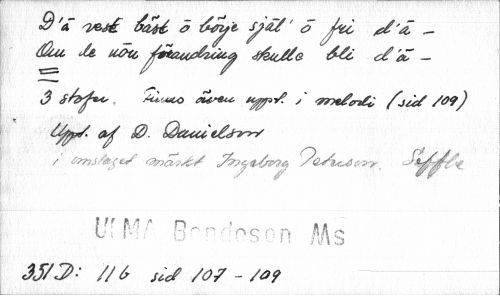 D'ä vest bäst ö börje själ' ö fri d'ä –
Om de nön förandring skulle bli d'ä –
3 strofer. Finns även uppt. i melodi (sid 109)
Uppt. af D. Danielson
i omslaget märkt Ingeborg Peterson. Seffle
ULMA Bondeson Ms
351 D: 11 b sid 107 – 109